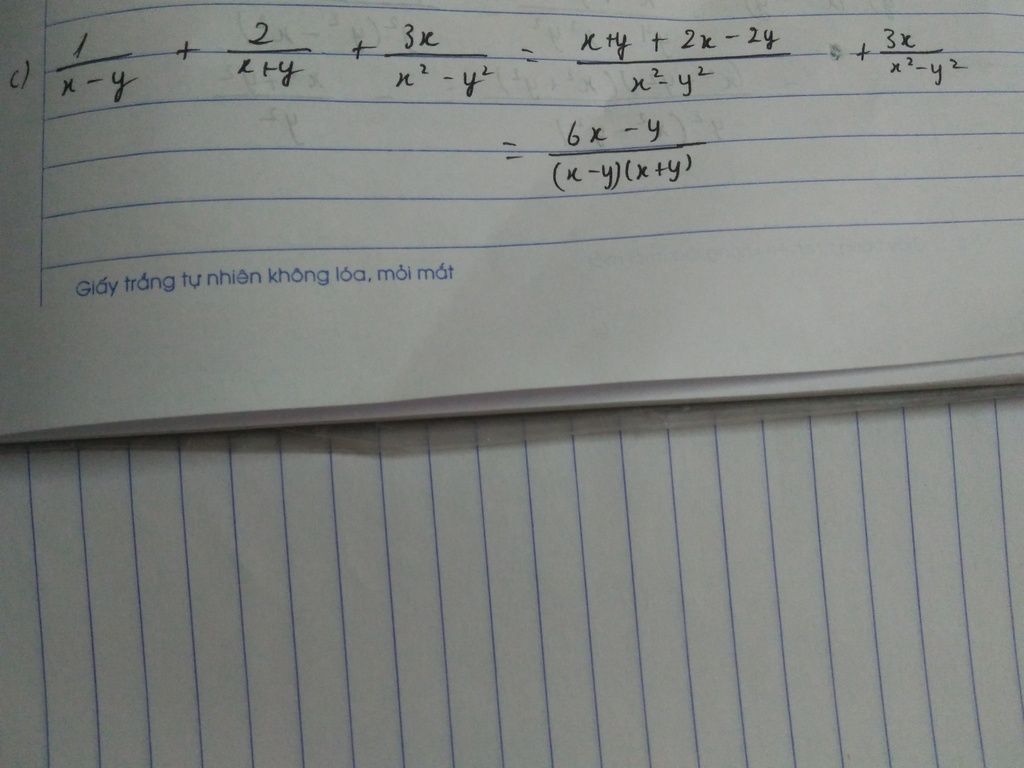 c) 1/(x-y) + 2/(x+y) + 3x/(x²-y²) = (x+y+2x-2y)/(x²-y²) + 3x/(x²-y²)
= (6x-y)/((x-y)(x+y))
Giấy trắng tự nhiên không lóa, mỏi mắt